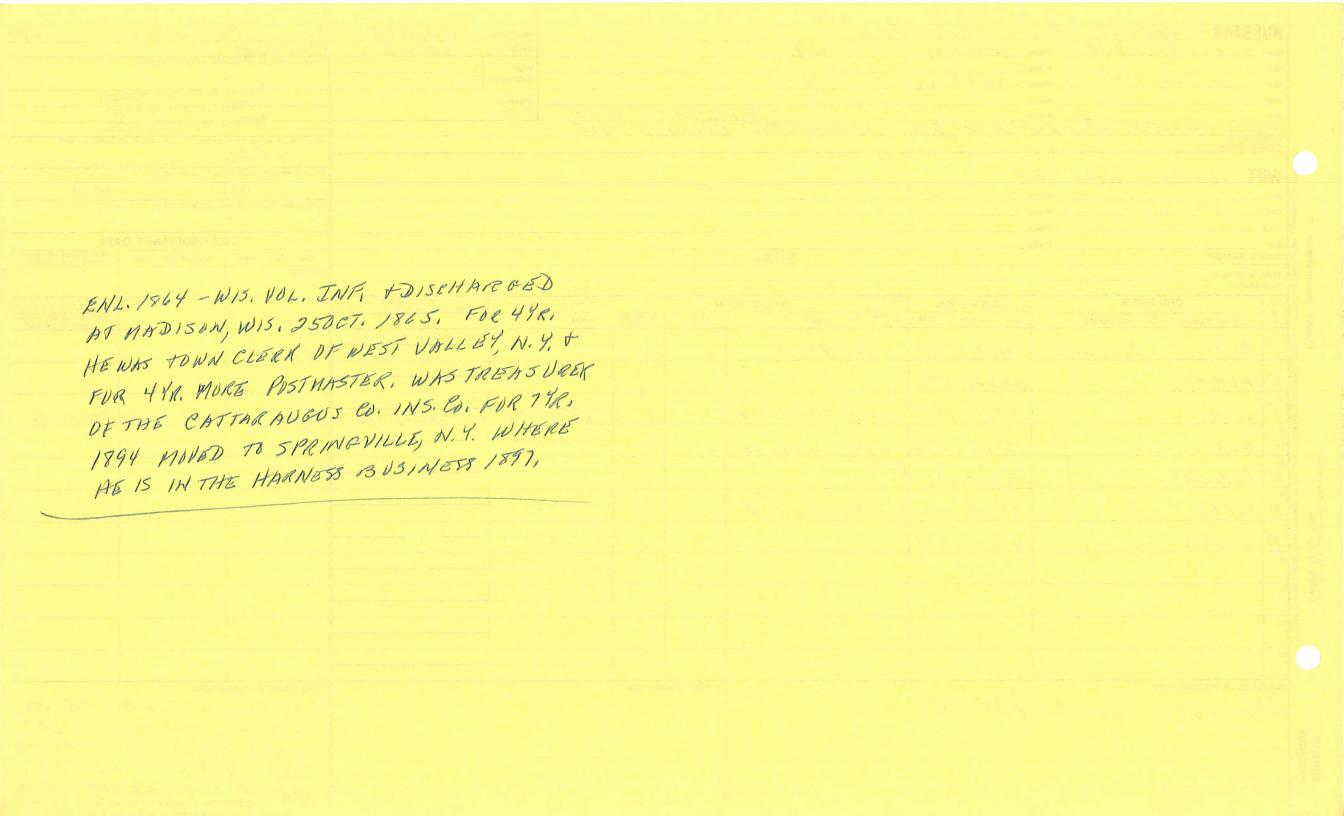 ENL. 1864 - WIS. VOL. INF. & DISCHARGED
AT MADISON, WIS. 25 OCT. 1865. FOR 4 YR.
HE WAS TOWN CLERK OF WEST VALLEY, N.Y. &
FOR 4 YR. MORE POSTMASTER. WAS TREASURER
OF THE CATTARAUGUS CO. INS. CO. FOR 7 YR.
1894 MOVED TO SPRINGVILLE, N.Y. WHERE
HE IS IN THE HARNESS BUSINESS 1897.